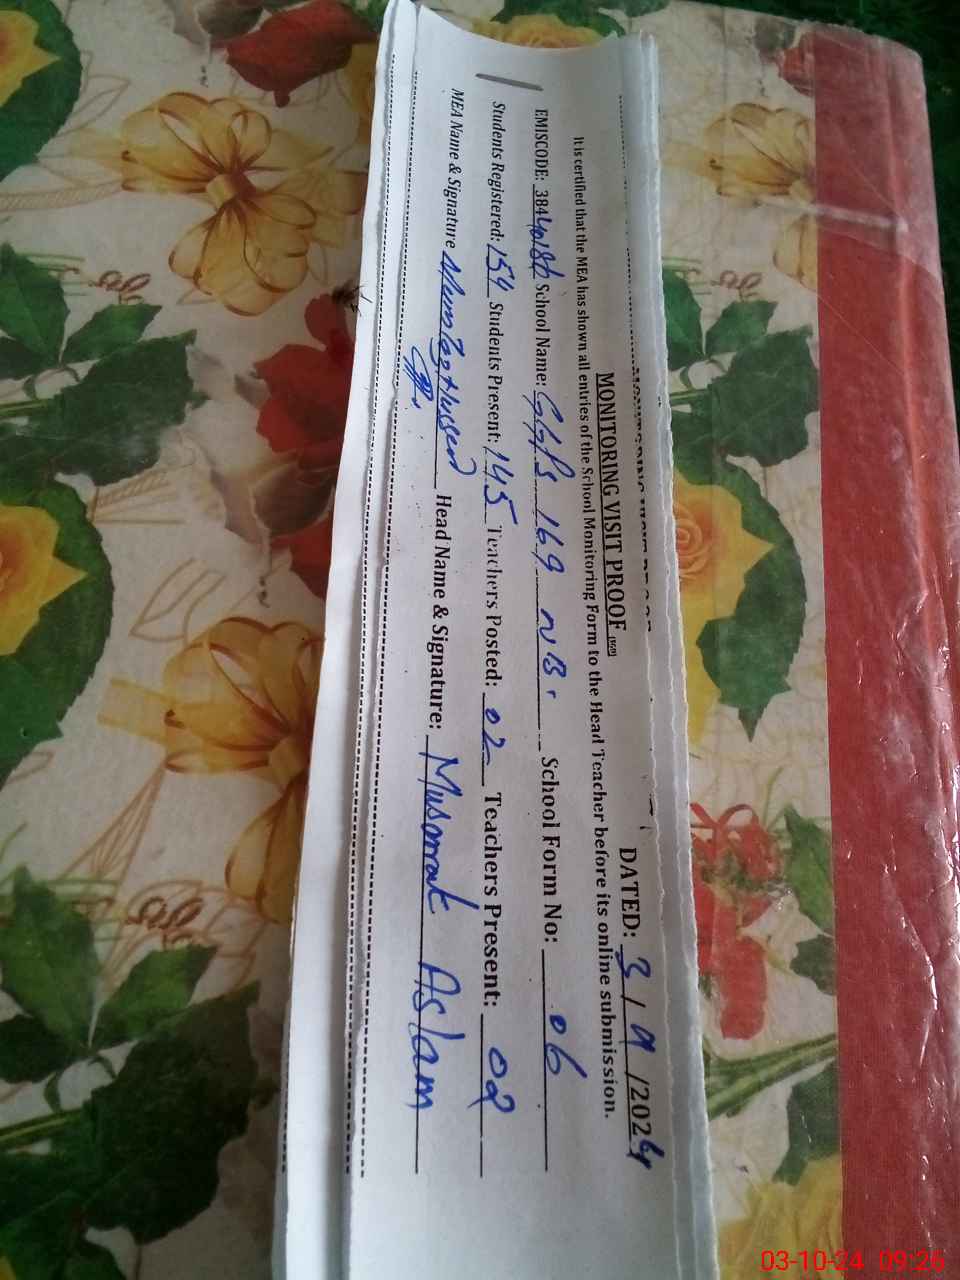 MONITORING VISIT PROOF DATED: 3/9/2024
It is certified that the MEA has shown all entries of the School Monitoring Form to the Head Teacher before its online submission.
EMISCODE: 384 School Name: 169 NB. School Form No: 06
Students Registered: 154 Students Present: 145 Teachers Posted: 02 Teachers Present: 02
MEA Name & Signature Head Name & Signature: Musarrat Aslam
03-10-24 09:26